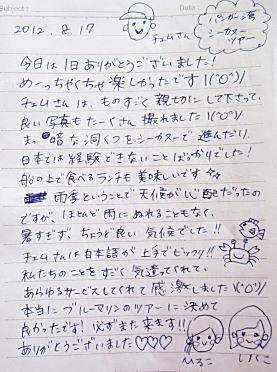 Subject: Date :
2012.8.17
チェムさん
パンガー湾
シーカヌー
ツアー
今日は1日ありがとうございました!
めーっちゃくちゃ楽しかったです!\(^o^)/
チェムさんは、ものすごく親切にして下さって、
良い写真もたーくさん撮れました!\(^o^)/
まっ暗な洞くつをシーカヌーで進んだり、
日本では経験できないことばっかりでした!
船の上で食べるランチも美味しいです☆
雨季ということで天候が心配だったの
ですが、ほとんど雨にぬれることもなく、
暑すぎず、ちょうど良い気候でした!!
チェムさんは日本語が上手でビックリ!!
私たちのことをすごく気遣ってくれて、
あらゆるサービスしてくれて感激しました\(^o^)/
本当にブルーマリンのツアーに決めて
良かったです!必ずまた来ます!!
ありがとうございました♡♡♡
ひろこ